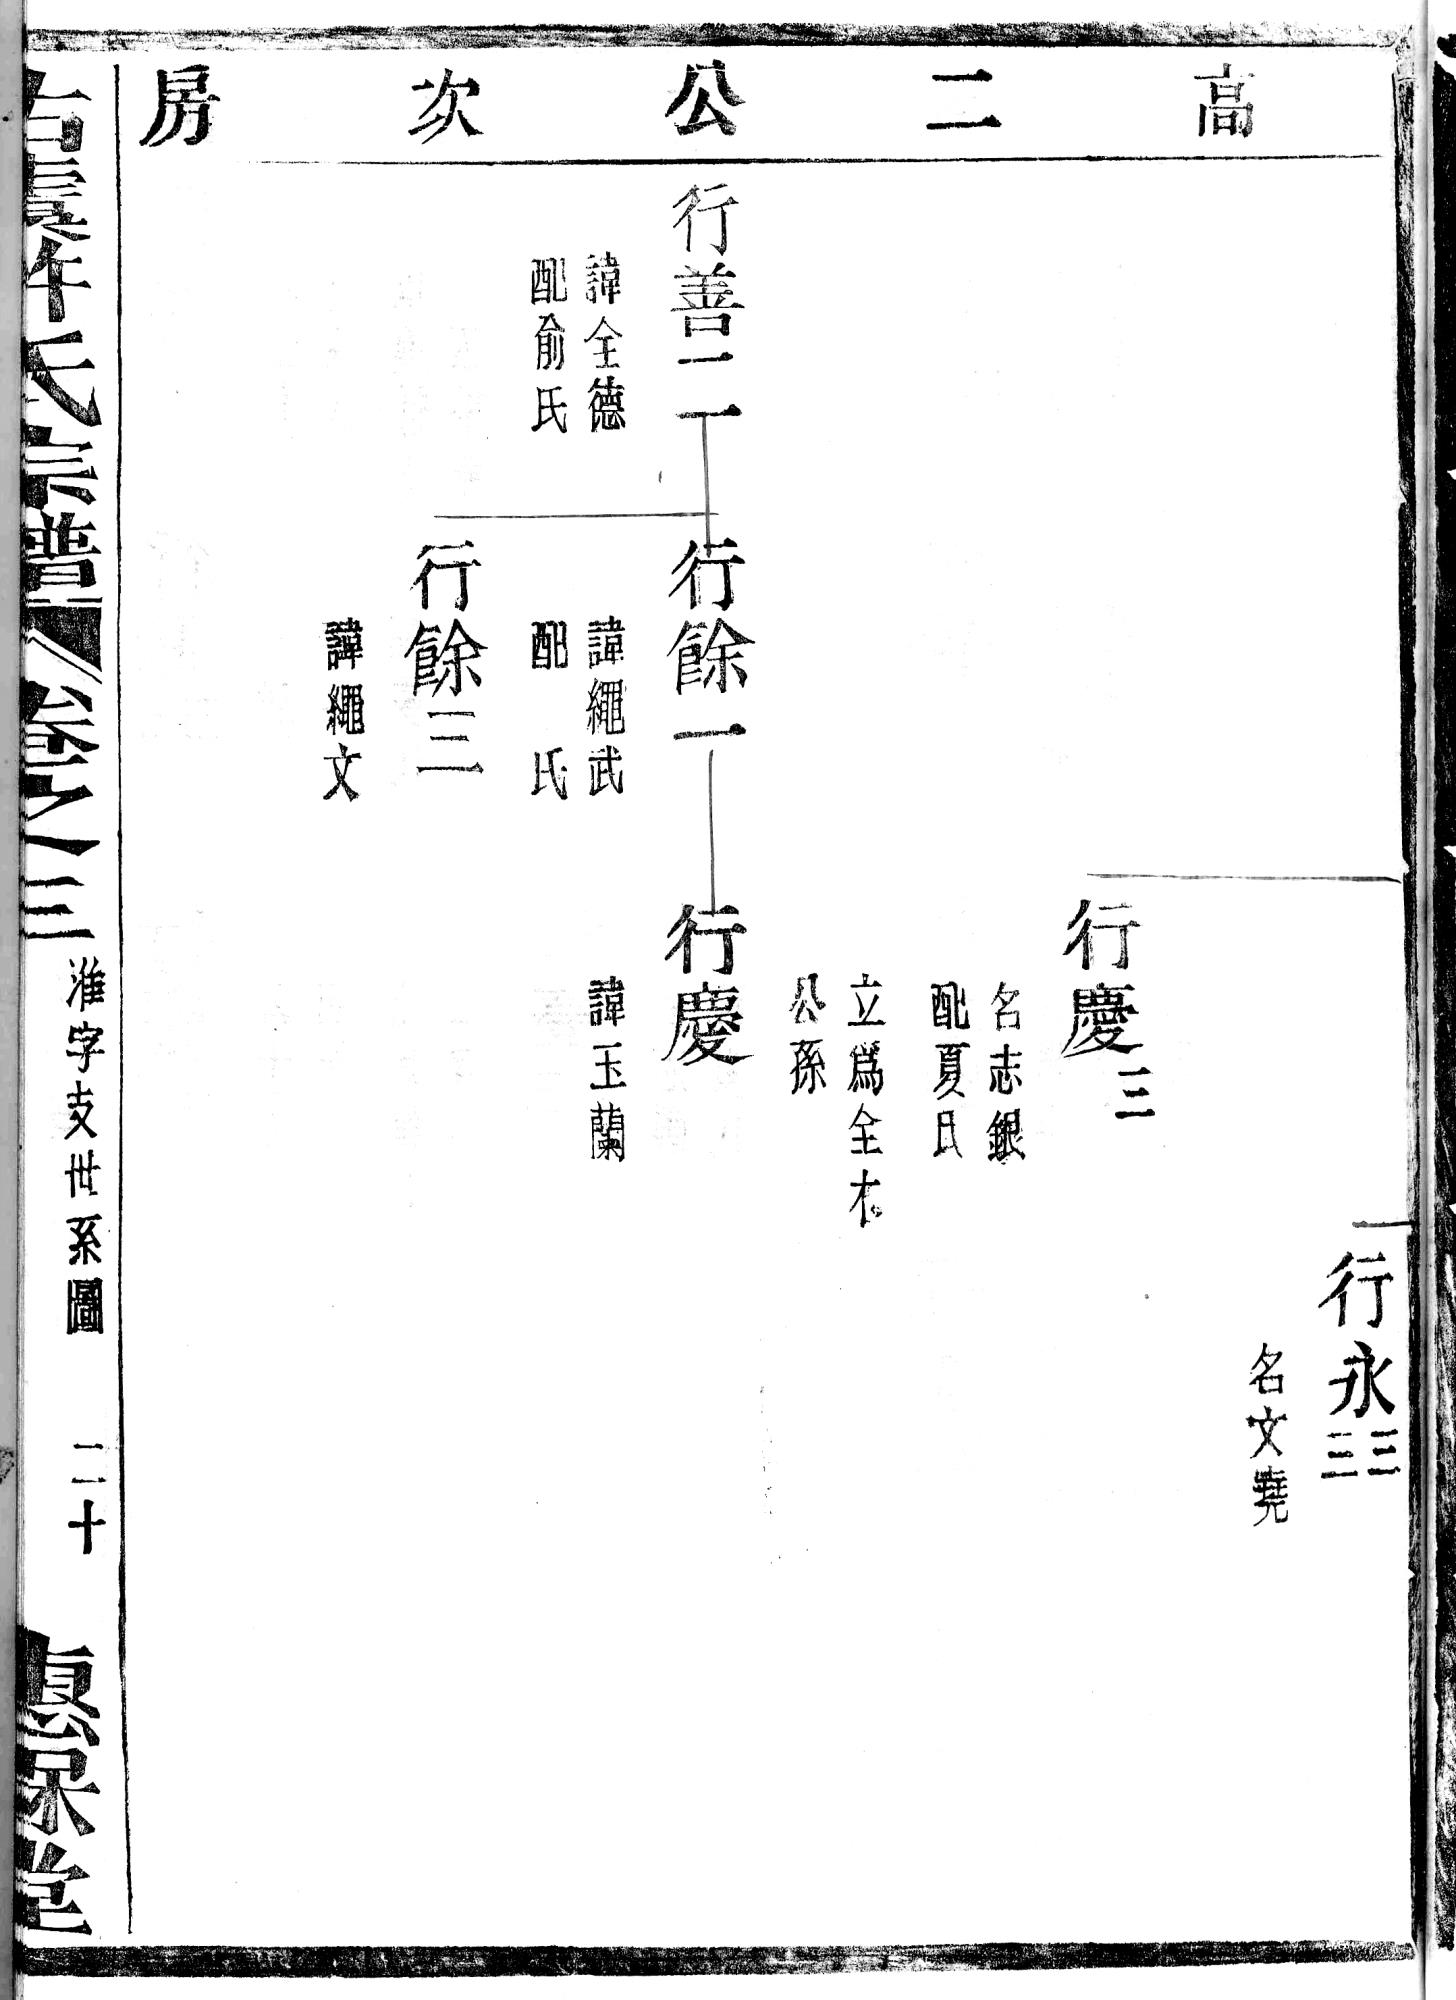 高二公次房
行永三三
名文堯
行慶三
名志銀
配夏氏
立爲全
公孫
行善二
諱全德
配俞氏
行餘一
諱繩武
配　氏
行慶
諱玉蘭
行餘三
諱繩文
古虞許氏宗譜
卷之三
淮字支世系圖
二十
保堂